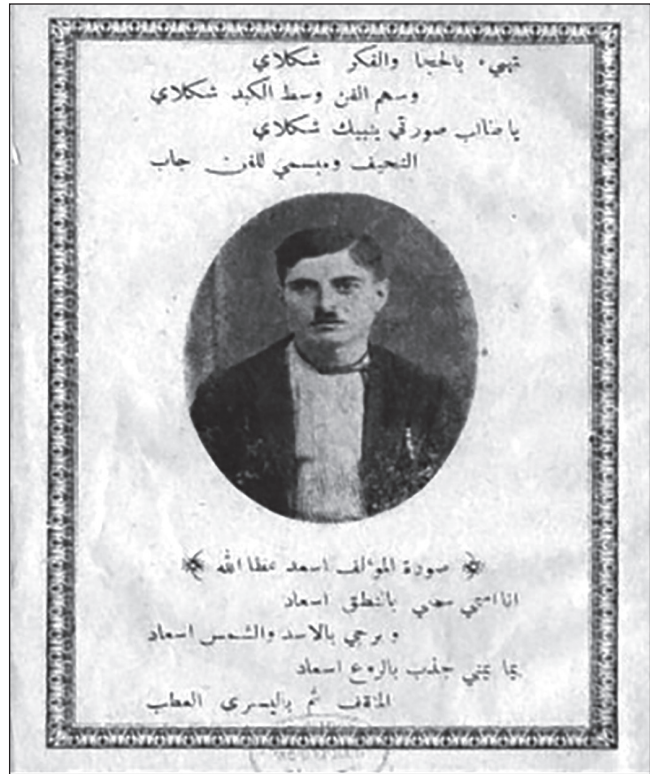 تهيء بالحجا والفكر شكلاي
وسهم الفن وسط الكبد شكلاي
يا طالب صورتي ينبيك شكلاي
النحيف ومبسمي للفن جاب
صورة المؤلف اسعد عطا الله
انا اسمي سمي بالنطق اسعاد
وبرجي بالاسد والشمس اسعاد
بما يمني جذب بالروع اسعاد
المثقف ثم باليسرى العطب